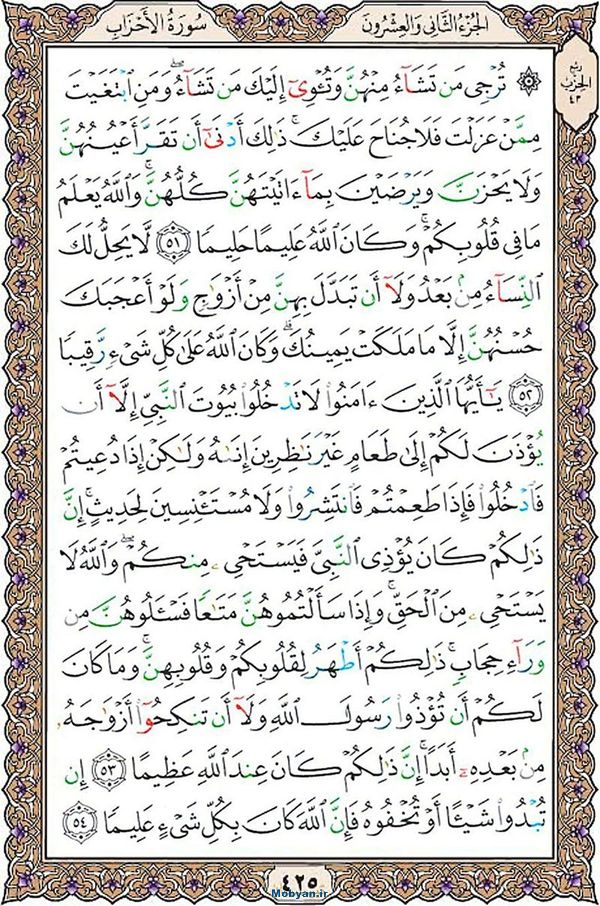 سُورَةُ الأَحۡزَابِ
الجُزۡءُ الثَّانِی وَالعِشۡرُونَ
رُبۡعُ
الحِزۡبِ
٤٣
۞ تُرۡجِي مَن تَشَآءُ مِنۡهُنَّ وَتُـٔۡوِيٓ إِلَيۡكَ مَن تَشَآءُۖ وَمَنِ ٱبۡتَغَيۡتَ
مِمَّنۡ عَزَلۡتَ فَلَا جُنَاحَ عَلَيۡكَۚ ذَٰلِكَ أَدۡنَىٰٓ أَن تَقَرَّ أَعۡيُنُهُنَّ
وَلَا يَحۡزَنَّ وَيَرۡضَيۡنَ بِمَآ ءَاتَيۡتَهُنَّ كُلُّهُنَّۚ وَٱللَّهُ يَعۡلَمُ
مَا فِي قُلُوبِكُمۡۚ وَكَانَ ٱللَّهُ عَلِيمًا حَلِيمٗا ٥١ لَّا يَحِلُّ لَكَ
ٱلنِّسَآءُ مِنۢ بَعۡدُ وَلَآ أَن تَبَدَّلَ بِهِنَّ مِنۡ أَزۡوَٰجٖ وَلَوۡ أَعۡجَبَكَ
حُسۡنُهُنَّ إِلَّا مَا مَلَكَتۡ يَمِينُكَۗ وَكَانَ ٱللَّهُ عَلَىٰ كُلِّ شَيۡءٖ رَّقِيبٗا
٥٢ يَٰٓأَيُّهَا ٱلَّذِينَ ءَامَنُواْ لَا تَدۡخُلُواْ بُيُوتَ ٱلنَّبِيِّ إِلَّآ أَن
يُؤۡذَنَ لَكُمۡ إِلَىٰ طَعَامٍ غَيۡرَ نَٰظِرِينَ إِنَىٰهُ وَلَٰكِنۡ إِذَا دُعِيتُمۡ
فَٱدۡخُلُواْ فَإِذَا طَعِمۡتُمۡ فَٱنتَشِرُواْ وَلَا مُسۡتَـٔۡنِسِينَ لِحَدِيثٍۚ إِنَّ
ذَٰلِكُمۡ كَانَ يُؤۡذِي ٱلنَّبِيَّ فَيَسۡتَحۡيِۦ مِنكُمۡۖ وَٱللَّهُ لَا
يَسۡتَحۡيِۦ مِنَ ٱلۡحَقِّۚ وَإِذَا سَأَلۡتُمُوهُنَّ مَتَٰعٗا فَسۡـَٔلُوهُنَّ مِن
وَرَآءِ حِجَابٖۚ ذَٰلِكُمۡ أَطۡهَرُ لِقُلُوبِكُمۡ وَقُلُوبِهِنَّۚ وَمَا كَانَ
لَكُمۡ أَن تُؤۡذُواْ رَسُولَ ٱللَّهِ وَلَآ أَن تَنكِحُوٓاْ أَزۡوَٰجَهُۥ
مِنۢ بَعۡدِهِۦٓ أَبَدًاۚ إِنَّ ذَٰلِكُمۡ كَانَ عِندَ ٱللَّهِ عَظِيمًا ٥٣ إِن
تُبۡدُواْ شَيۡـًٔا أَوۡ تُخۡفُوهُ فَإِنَّ ٱللَّهَ كَانَ بِكُلِّ شَيۡءٍ عَلِيمٗا ٥٤
٤٢٥
Mobyan.ir